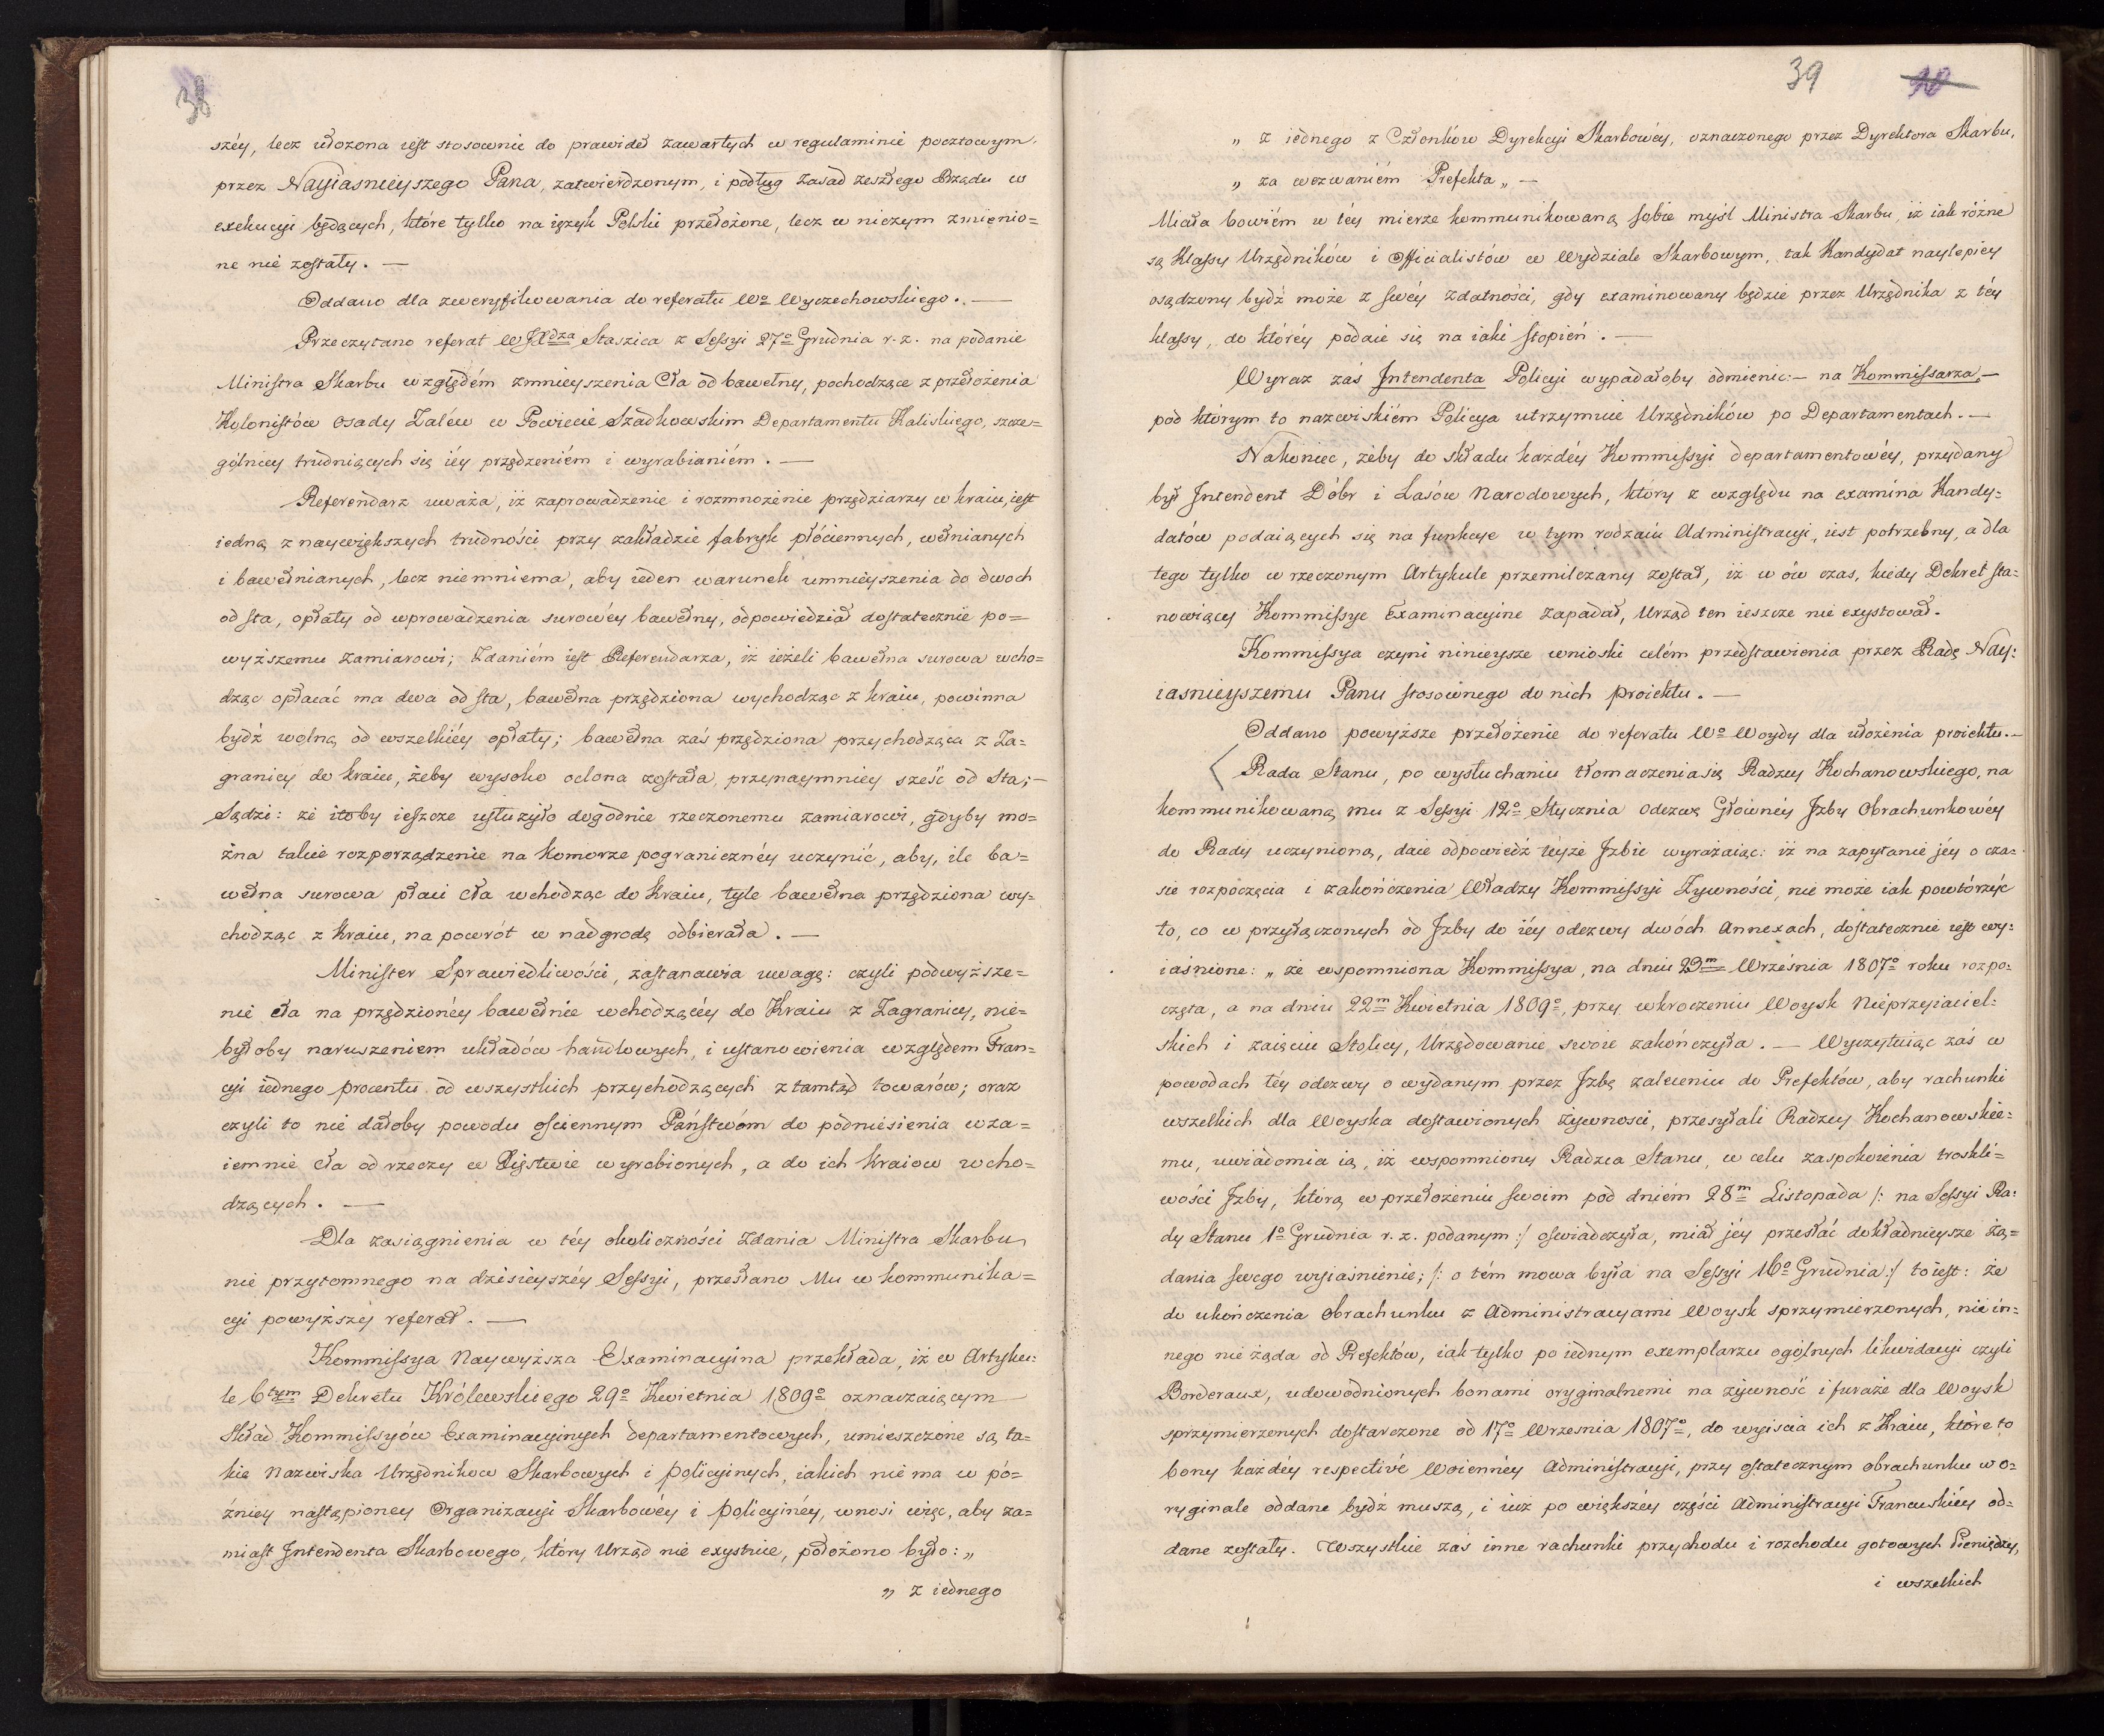 38
széy, lecz ułożona iest stosownie do prawideł zawartych w regulaminie pocztowym,
przez Nayiasnieyszego Pana, zatwierdzonym, i podług zasad zeszłego Rządu w
exekucyi będących, które tylko na ięzyk Polski przełożone, lecz w niczym zmienio=
ne nie zostały. —
Oddano dla zweryfikowania do referatu Wo Wyczechowskiego. —
Przeczytano referat WJXdza Staszica z Sessyi 27o Grudnia r. z. na podanie
Ministra Skarbu względém zmnieyszenia Cła od bawełny, pochodzące z przełożenia
Kolonistów osady Zalew w Powiecie Szadkowskim Departamentu Kaliskiego, szcze=
gólniey trudniących się iéy przędzeniém i wyrabianiém. —
Referendarz uważa, iż zaprowadzenie i rozmnożenie przędziarzy w kraiu, iest
iedną z naywiększych trudności przy zakładzie fabryk płóciennych, wełnianych
i bawełnianych, lecz niemniema, aby ieden warunek umnieyszenia do dwoch
od sta, opłaty od wprowadzenia surowéy bawełny, odpowiedział dostatecznie po=
wyższemu zamiarowi; Zdaniém iest Referendarza, iż ieżeli bawełna surowa wcho=
dząc opłacać ma dwa od sta, bawełna przędziona wychodząc z kraiu, powinna
bydź wolną od wszelkiéy opłaty; bawełna zaś przędziona przychodząca z Za=
granicy do kraiu, żeby wysoko oclona została, przynaymniey sześć od sta; —
Sądzi: że itoby ieszcze usłużyło dogodnie rzeczonemu zamiarowi, gdyby mo=
żna takie rozporządzenie na Komorze pograniczney uczynić, aby, ile ba=
wełna surowa płaci cła wchodząc do kraiu, tyle bawełna przędziona wy=
chodząc z kraiu, na powrót w nadgrodę odbierała. —
Minister Sprawiedliwości, zastanawia uwagę: czyli podwyższe=
nie cła na przędzionéy bawełnie wchodzącéy do Kraiu z Zagranicy, nie=
byłoby naruszeniem układów handlowych, i ustanowienia względem Fran=
cyi iednego procentu od wszystkich przychodzących z tamtąd towarów; oraz
czyli to nie dałoby powodu ościennym Państwóm do podniesienia wza=
iemnie cła od rzeczy w Xięstwie wyrobionych, a do ich kraiow wcho=
dzących. —
Dla zasiągnienia w téy okoliczności zdania Ministra Skarbu
nie przytomnego na dzisieyszéy Sessyi, przesłano Mu w kommunika=
cyi powyższey referat. —
Kommissya Naywyższa Examinacyina przekłada, iż w Artyku=
le 6tym Dekretu Królewskiego 29o Kwietnia 1809o oznaczaiącym
Skład Kommissyów Examinacyinych departamentowych, umieszczone są ta=
kie Nazwiska Urzędnikow Skarbowych i policyinych, iakich nie ma w pó=
źniey nastąpioney Organizacyi Skarbowéy i policyinéy, wnosi więc, aby za=
miast Intendenta Skarbowego, który Urząd nie exystuie, położono było: „
„ z iednego
39 40
„ z iednego z Członków Dyrekcyi Skarbowéy, oznaczonego przez Dyrektora Skarbu,
„ za wezwaniém Prefekta „ —
Miała bowiém w téy mierze kommunikowaną sobie myśl Ministra Skarbu, iż iak różne
są klassy Urzędników i Officialistów w Wydziale Skarbowym, tak Kandydat naylepiey
osądzony bydź może z swéy zdatności, gdy examinowany będzie przez Urzędnika z téy
klassy, do któréy podaie się na iaki stopień. —
Wyraz zaś Intendenta Policyi wypadałoby odmienić: — na Kommissarza, —
pod ktorym to nazwiskiém Policya utrzymuie Urzędników po Departamentach. —
Nakoniec, żeby do składu każdéy Kommissyi departamentowéy, przydany
był Intendent Dóbr i Lasów Narodowych, który z względu na examina Kandy=
datów podaiących się na funkcye w tym rodzaiu Administracyi, iest potrzebny, a dla
tego tylko w rzeczonym Artykule przemilczany został, iż w ów czas, kiedy Dekret sta=
nowiący Kommissye Examinacyine zapadał, Urząd ten ieszcze nie exystował.
Kommissya czyni ninieysze wnioski celém przedstawienia przez Radę Nay=
iasnieyszemu Panu stosownego do nich proiektu. —
Oddano powyższe przełożenie do referatu Wo Woydy dla ułożenia proiektu. —
Rada Stanu, po wysłuchaniu tłomaczenia się Radzcy Kochanowskiego, na
kommunikowaną mu z Sessyi 12o Stycznia odezwę Główney Izby Obrachunkowéy
do Rady uczynioną, daie odpowiedź téyże Izbie wyrażaiąc: iż na zapytanie jéy o cza=
sie rozpoczęcia i zakończenia Władzy Kommissyi Żywności, nie może iak powtórzyć
to, co w przyłączonych od Izby do iéy odezwy dwóch Annexach, dostatecznie iest wy=
iaśnione: „ że wspomniona Kommissya, na dniu 29m Września 1807o roku rozpo=
częta, a na dniu 22m Kwietnia 1809o, przy wkroczeniu Woysk Nieprzyiaciel=
skich i zaięciu Stolicy, Urzędowanie swoie zakończyła. — Wyczytuiąc zaś w
powodach téy odezwy o wydanym przez Izbę zaleceniu do Prefektów, aby rachunki
wszelkich dla Woyska dostawionych żywności, przesyłali Radzcy Kochanowskie=
mu, uwiadomia ią, iż wspomniony Radzca Stanu, w celu zaspokoienia troskli=
wości Izby, którą w przełożeniu swoim pod dniém 28m Listopada /: na Sessyi Ra=
dy Stanu 1o Grudnia r. z. podanym :/ oświadczyła, miał jéy przesłać dokładnieysze żą=
dania swego wyiaśnienie; /: o tém mowa była na Sessyi 16o Grudnia :/ to iest: że
do ukończenia obrachunku z Administracyami Woysk sprzymierzonych, nie in=
nego nie żąda od Prefektów, iak tylko po iednym exemplarzu ogólnych likwidacyi czyli
Borderaux, udowodnionych bonami oryginalnemi na żywność i furaże dla Woysk
sprzymierzonych dostarczone od 17o Wrzesnia 1807o, do wyiscia ich z Kraiu, które to
bony każdéy respectivé Woienney Administracyi, przy ostatecznym obrachunku w o=
ryginale oddane bydź muszą, i iuż po większéy części Administracyi Francuskiéy od=
dane zostały. Wszystkie zaś inne rachunki przychodu i rozchodu gotowych Pieniędzy,
i wszelkich